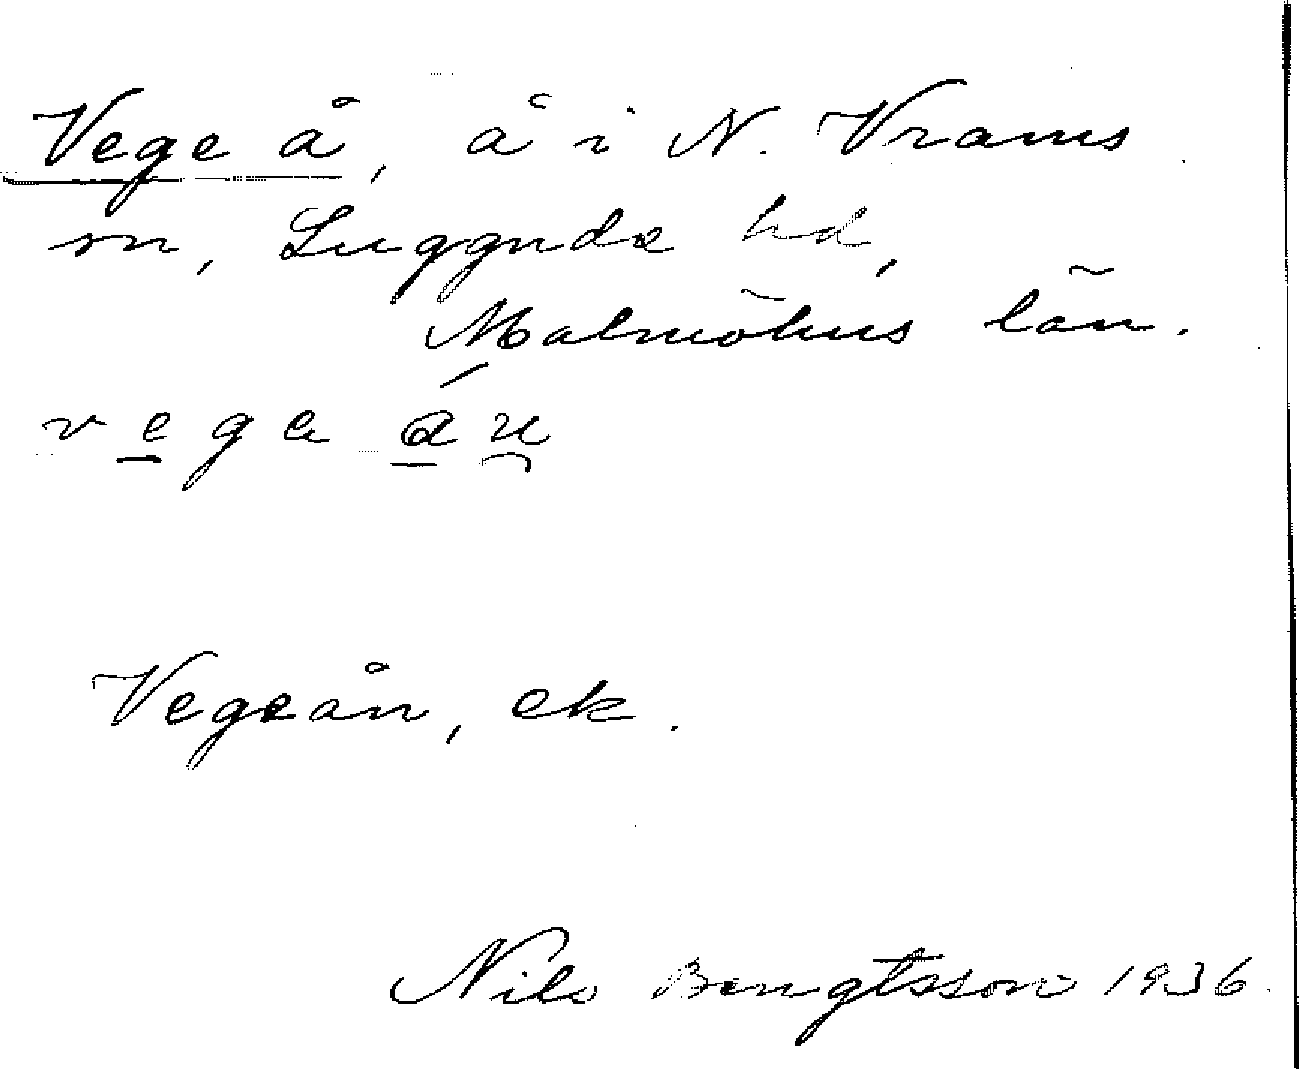 Vege å, å i N. Vrams
sn, Luggude hd,
Malmöhus län.
Vegeån, ek.
Nils Bengtsson 1936